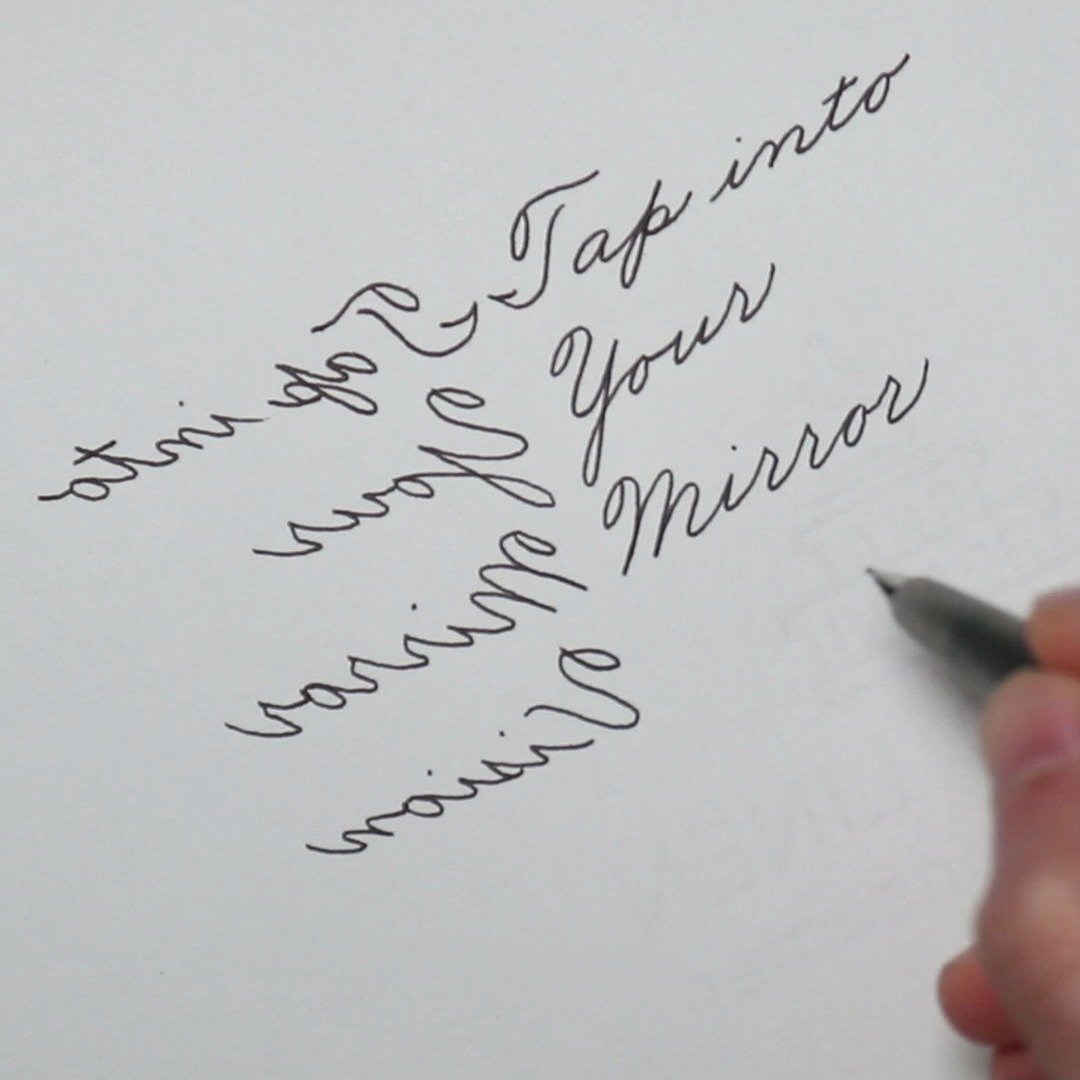 Tap into
Your
Mirror
Tap into
Your
Mirror
Vision